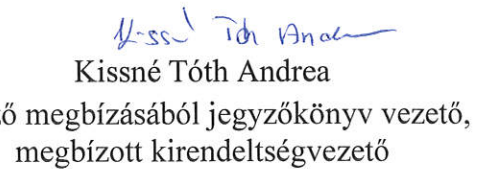 Kissné Tóth Andrea
Kissné Tóth Andrea
ző megbízásából jegyzőkönyv vezető,
megbízott kirendeltségvezető